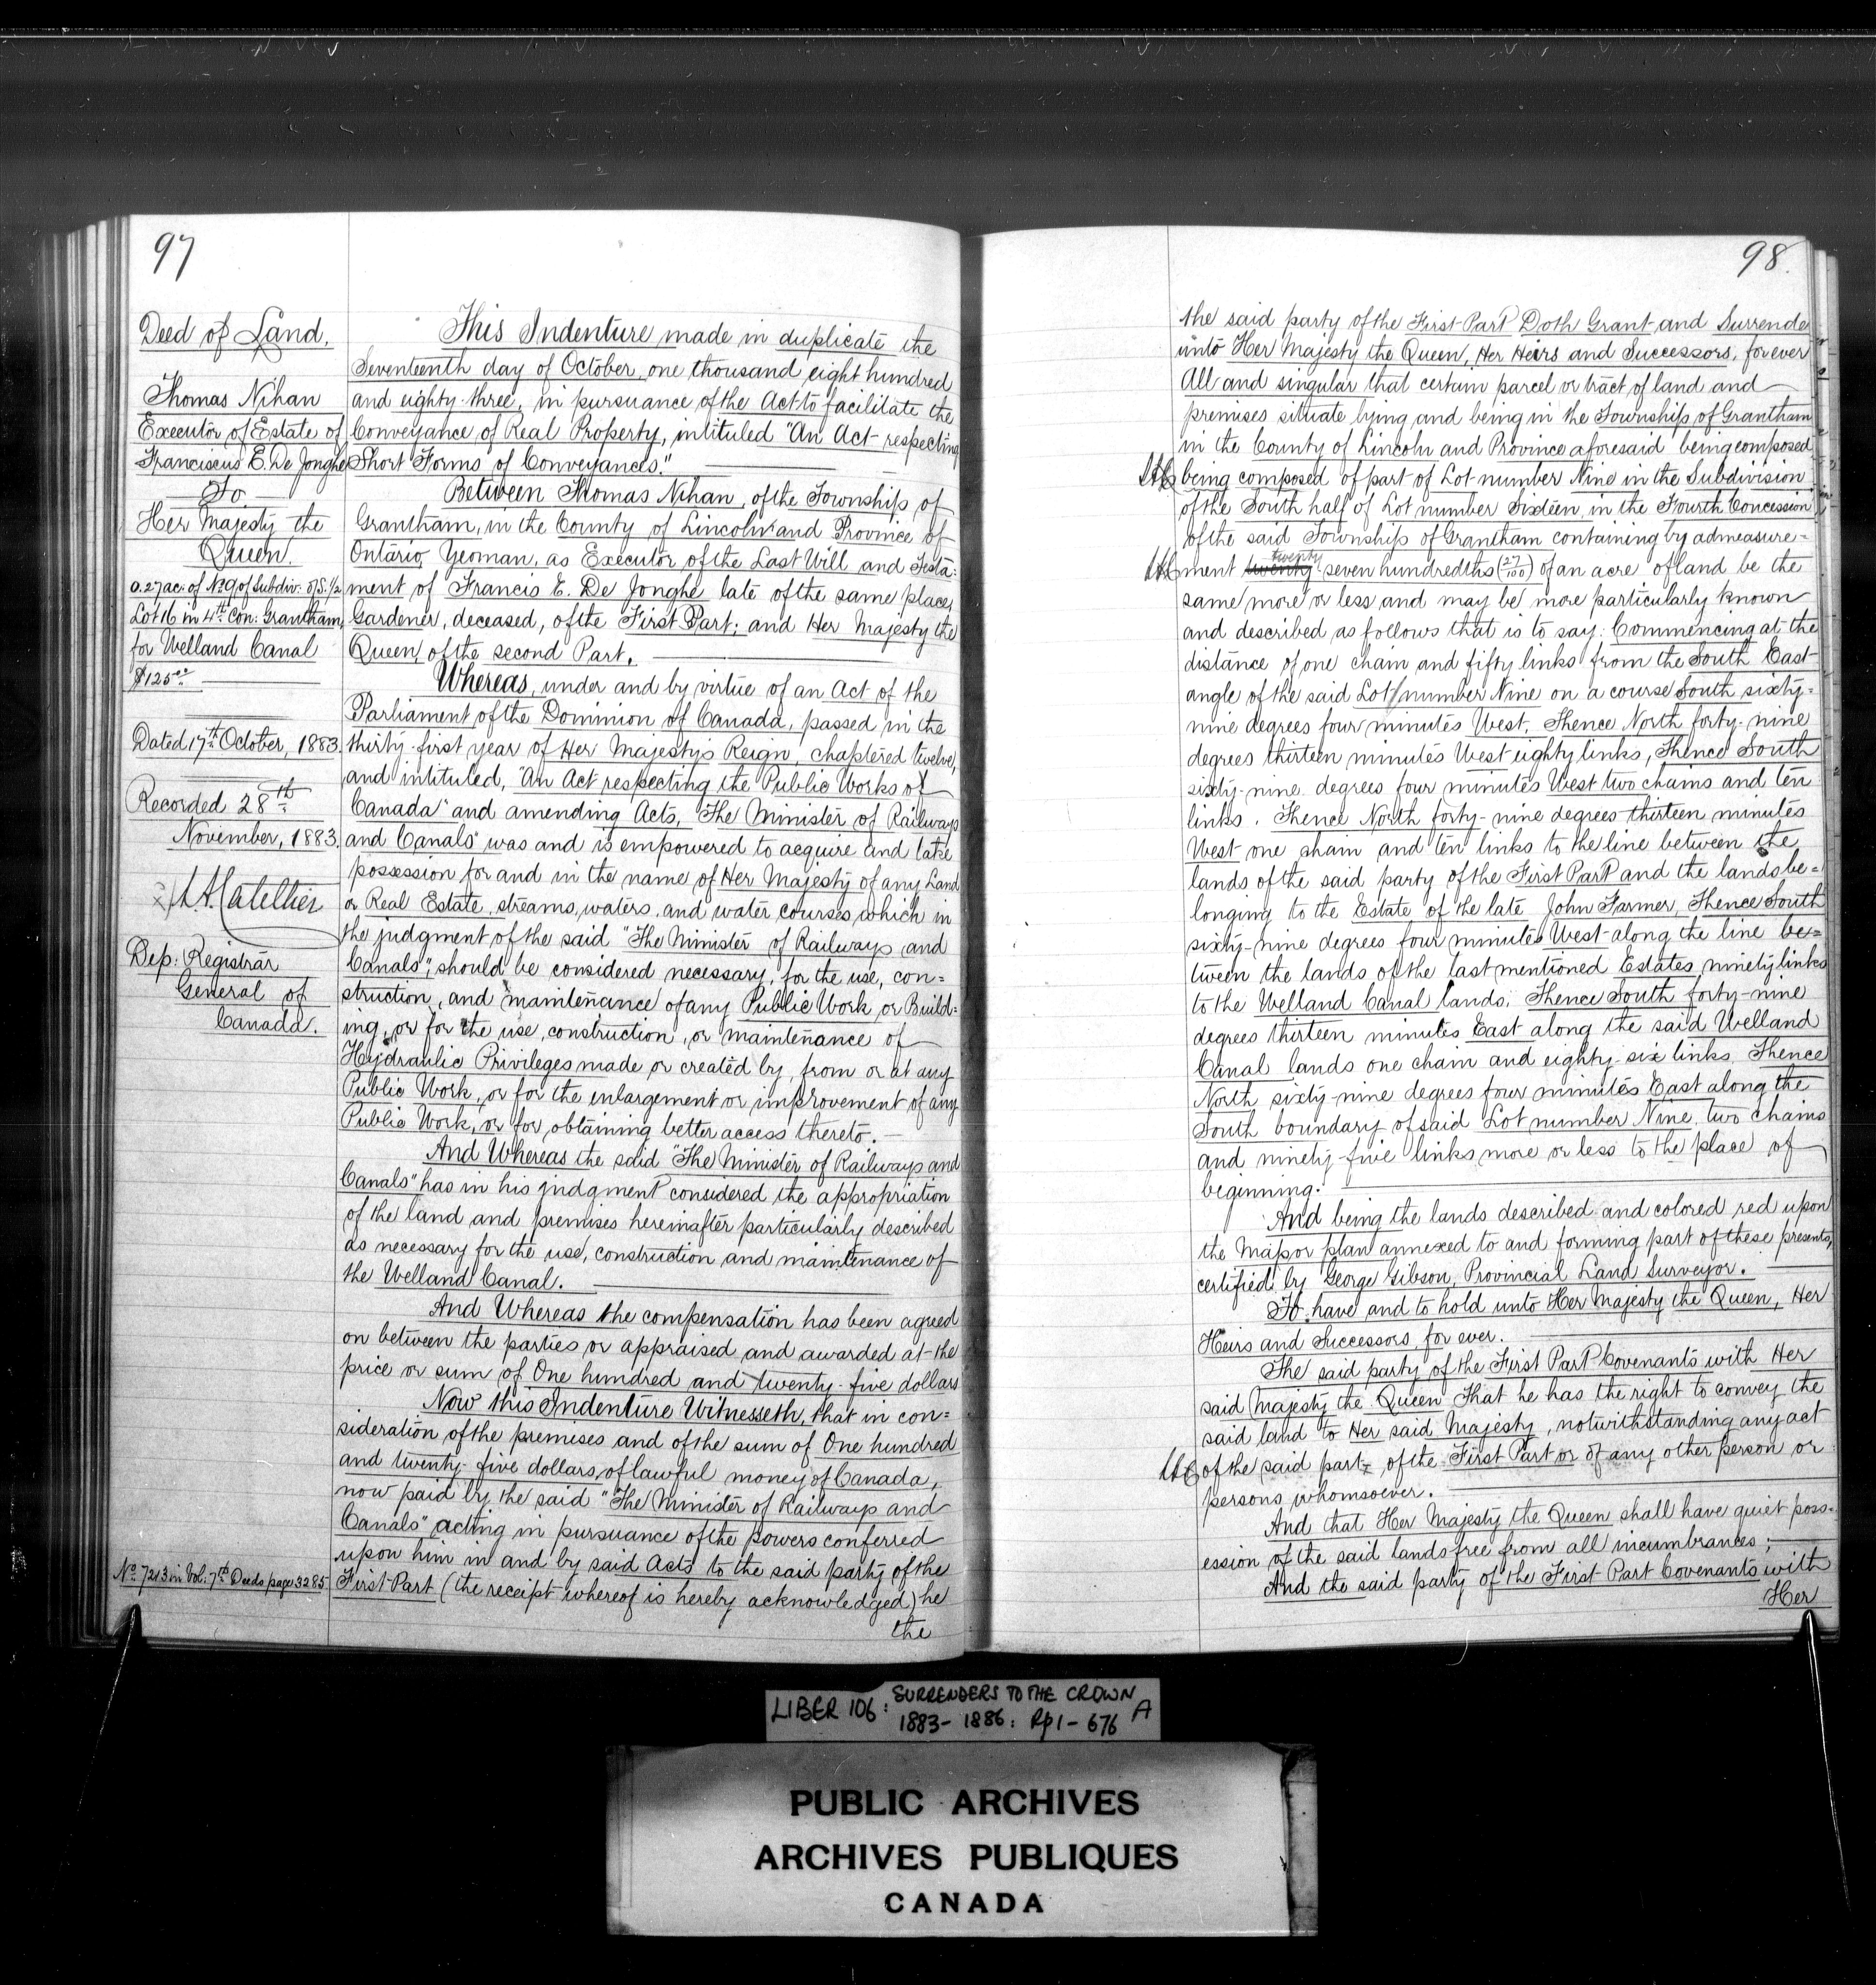 97
Deed of Land.
Thomas Nihan
Executor of Estate of
Franciscus E. De Jonghe
To
Her Majesty the
Queen.
0.27 ac: of No 9 of Subdiv: of S. 1/2
Lot 16 in 4th Con: Grantham,
for Welland Canal
$125.00
Dated 17th October, 1883.
Recorded 28th
November, 1883.
L.A. Catellier
Dep: Registrar
General of
Canada.
No 7213 in Vol: 7th Deeds page 3285
This Indenture made in duplicate the
Seventeenth day of October, one thousand eight hundred
and eighty-three, in pursuance of the Act to facilitate the
Conveyance of Real Property, intituled "An Act respecting
Short Forms of Conveyances."
Between Thomas Nihan, of the Township of
Grantham, in the County of Lincoln and Province of
Ontario, Yeoman, as Executor of the Last Will and Testa=
ment of Francis E. De Jonghe late of the same place,
Gardener, deceased, of the First Part; and Her Majesty the
Queen, of the second Part.
Whereas, under and by virtue of an Act of the
Parliament of the Dominion of Canada, passed in the
thirty-first year of Her Majesty's Reign, chaptered twelve,
and intituled, "An Act respecting the Public Works of
Canada" and amending Acts, "The Minister of Railways
and Canals" was and is empowered to acquire and take
possession for and in the name of Her Majesty of any Land
or Real Estate, streams, waters, and water courses, which in
the judgment of the said "The Minister of Railways and
Canals", should be considered necessary, for the use, con=
struction, and maintenance of any Public Work or Build=
ing, or for the use, construction, or maintenance of
Hydraulic Privileges made or created by, from or at any
Public Work, or for the enlargement or improvement of any
Public Work, or for obtaining better access thereto.
And Whereas the said "The Minister of Railways and
Canals" has in his judgment considered the appropriation
of the land and premises hereinafter particularly described
as necessary for the use, construction and maintenance of
the Welland Canal.
And Whereas the compensation has been agreed
on between the parties or appraised and awarded at the
price or sum of One hundred and twenty-five dollars
Now this Indenture Witnesseth, that in con=
sideration of the premises and of the sum of One hundred
and twenty-five dollars, of lawful money of Canada,
now paid by the said "The Minister of Railways and
Canals" acting in pursuance of the powers conferred
upon him in and by said Acts to the said party of the
First Part (the receipt whereof is hereby acknowledged) he
the
98.
the said party of the First Part Doth Grant and Surrende
unto Her Majesty the Queen, Her Heirs and Successors, for ever
All and singular that certain parcel or tract of land and
premises situate lying and being in the Township of Grantham
in the County of Lincoln and Province aforesaid being composed
being composed of part of Lot number Nine in the Subdivision
of the South half of Lot number Sixteen, in the Fourth Concession
of the said Township of Grantham containing by admeasure=
ment twenty twenty seven hundredths (27/100) of an acre of land be the
same more or less and may be more particularly known
and described as follows that is to say: Commencing at the
distance of one chain and fifty links from the South East
angle of the said Lot number Nine on a course South sixty=
nine degrees four minutes West, Thence North forty-nine
degrees thirteen minutes West eighty links, Thence South
sixty-nine degrees four minutes West two chains and ten
links. Thence North forty-nine degrees thirteen minutes
West one chain and ten links to the line between the
lands of the said party of the First Part and the lands be=
longing to the Estate of the late John Farmer, Thence South
sixty-nine degrees four minutes West along the line be=
tween the lands of the last mentioned Estates, ninety links
to the Welland Canal lands; Thence South forty-nine
degrees thirteen minutes East along the said Welland
Canal lands one chain and eighty-six links, Thence
North sixty-nine degrees four minutes East along the
South boundary of said Lot number Nine, two chains
and ninety-five links, more or less to the place of
beginning.
And being the lands described and colored red upon
the Map or plan annexed to and forming part of these presents,
certified by George Gibson, Provincial Land Surveyor.
To have and to hold unto Her Majesty the Queen, Her
Heirs and Successors, for ever.
The said party of the First Part Covenants with Her
said Majesty the Queen That he has the right to convey the
said land to Her said Majesty, notwithstanding any act
of the said party of the First Part or of any other person or
persons whomsoever.
And that Her Majesty the Queen shall have quiet poss=
ession of the said lands free from all incumbrances;
And the said party of the First Part Covenants with
Her
LIBER 106: SURRENDERS TO THE CROWN A
1883-1886: Pp 1-676
PUBLIC ARCHIVES
ARCHIVES PUBLIQUES
CANADA